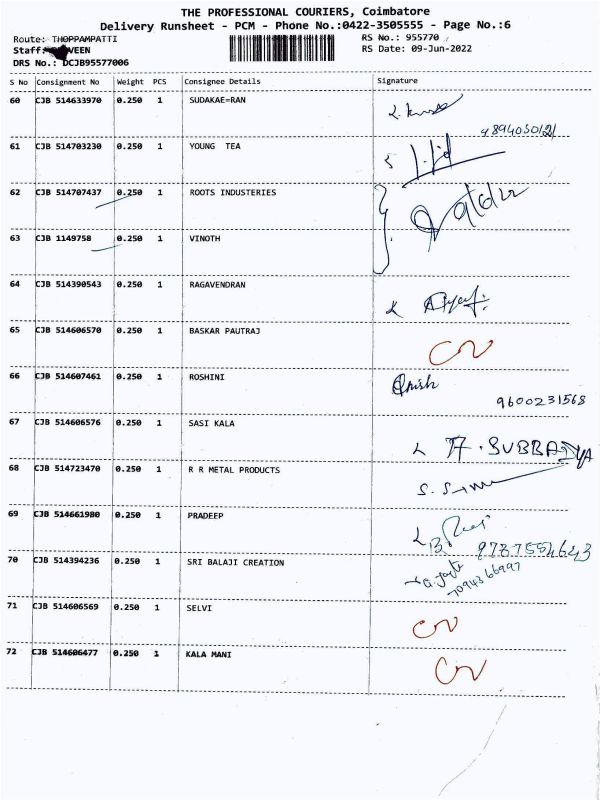 THE PROFESSIONAL COURIERS, Coimbatore
Delivery Runsheet - PCM - Phone No.:0422-3505555 - Page No.:6
Route: THOPPAMPATTI RS No.: 955770
Staff: VEEN RS Date: 09-Jun-2022
DRS No.: DCJB95577006
S No Consignment No Weight PCS Consignee Details Signature
60 CJB 514633970 0.250 1 SUDAKAE=RAN
61 CJB 514703230 0.250 1 YOUNG TEA
62 CJB 514707437 0.250 1 ROOTS INDUSTERIES
63 CJB 1149758 0.250 1 VINOTH
64 CJB 514390543 0.250 1 RAGAVENDRAN
65 CJB 514606570 0.250 1 BASKAR PAUTRAJ
66 CJB 514607461 0.250 1 ROSHINI
9600231568
67 CJB 514606576 0.250 1 SASI KALA
68 CJB 514723470 0.250 1 R R METAL PRODUCTS
69 CJB 514661980 0.250 1 PRADEEP
70 CJB 514394236 0.250 1 SRI BALAJI CREATION
7094366997
71 CJB 514606569 0.250 1 SELVI
72 CJB 514606477 0.250 1 KALA MANI